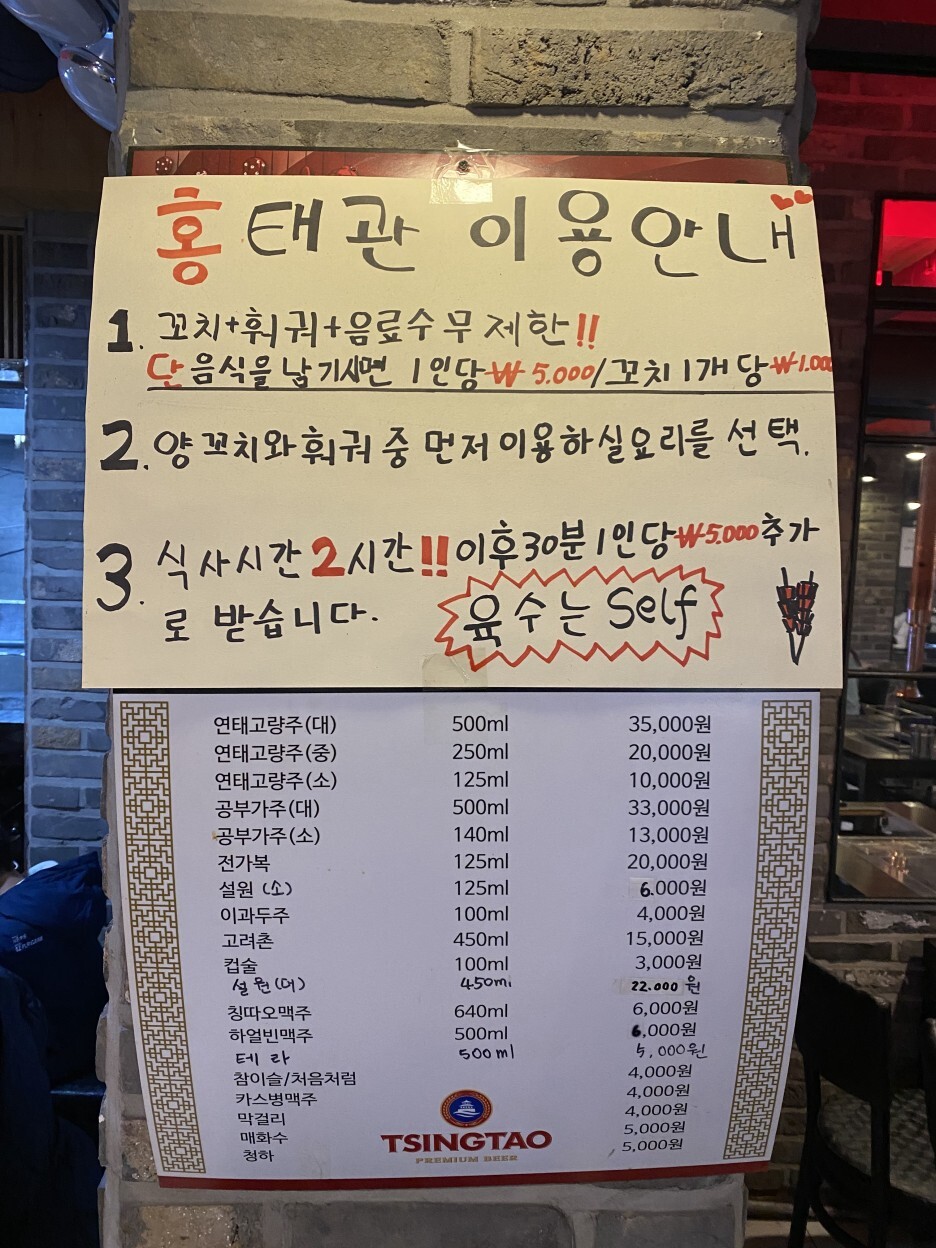 홍태관 이용안내
1. 꼬치+훠궈+음료수 무제한!!
단 음식을 남기시면 1인당 ₩5.000/꼬치 1개당 ₩1.000
2. 양꼬치와 훠궈 중 먼저 이용하실요리를 선택.
3. 식사시간 2시간!! 이후30분 1인당 ₩5.000 추가
로 받습니다.
육수는 Self
연태고량주(대) 500ml 35,000원
연태고량주(중) 250ml 20,000원
연태고량주(소) 125ml 10,000원
공부가주(대) 500ml 33,000원
공부가주(소) 140ml 13,000원
전가복 125ml 20,000원
설원 (소) 125ml 6.000원
이과두주 100ml 4,000원
고려촌 450ml 15,000원
컵술 100ml 3,000원
설원(대) 450ml 22.000원
칭따오맥주 640ml 6,000원
하얼빈맥주 500ml 6,000원
테라 500ml 5,000원
참이슬/처음처럼 4,000원
카스병맥주 4,000원
막걸리 4,000원
매화수 5,000원
청하 5,000원
TSINGTAO
PREMIUM BEER